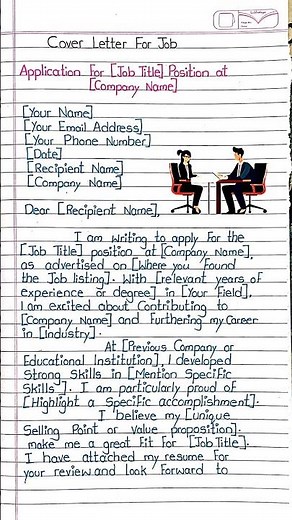 Cover Letter For Job
Application For [Job Title] Position at
[Company Name]
[Your Name]
[Your Email Address]
[Your Phone Number]
[Date]
[Recipient Name]
[Company Name]
Dear [Recipient Name],
I am writing to apply For the
[Job Title] position at [Company Name],
as advertised on [Where you Found
the Job listing]. With [relevant years of
experience or degree] in [Your Field],
I am excited about Contributing to
[Company Name] and Furthering my Career
in [Industry].
At [Previous Company or
Educational Institution], I developed
Strong Skills in [Mention Specific
Skills]. I am particularly proud of
[Highlight a Specific accomplishment].
I believe my [unique
Selling Point or value proposition].
make me a great Fit For [Job Title].
I have attached my resume For
your review and look Forward to